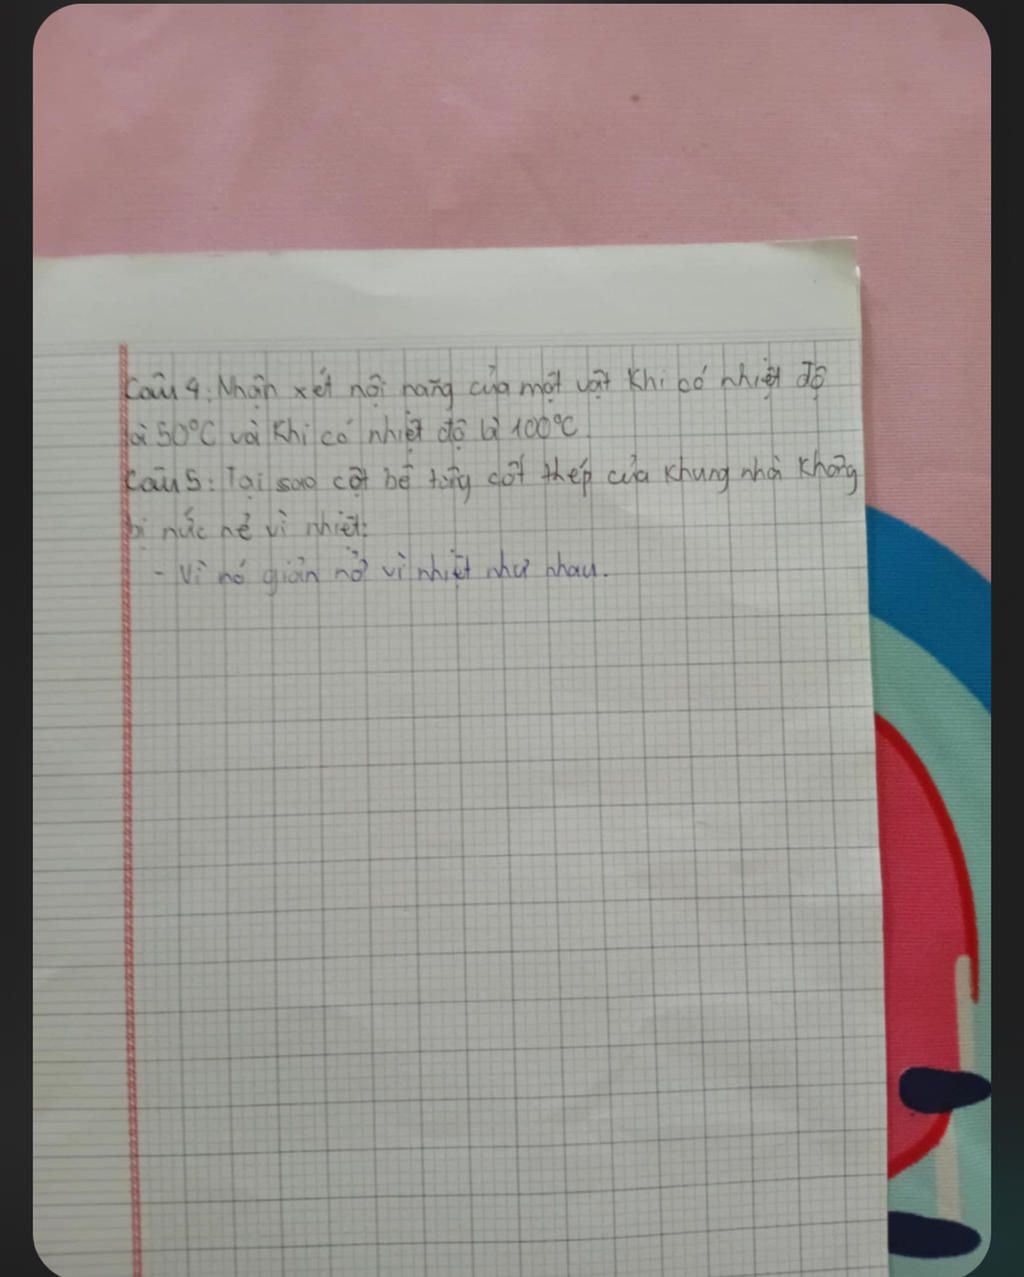 Câu 4: Nhận xét nội năng của một vật khi có nhiệt độ
là 50°C và khi có nhiệt độ là 100°C.
Câu 5: Tại sao cột bê tông cốt thép của khung nhà không
bị nức nẻ vì nhiệt:
- Vì nó giản nở vì nhiệt như nhau.